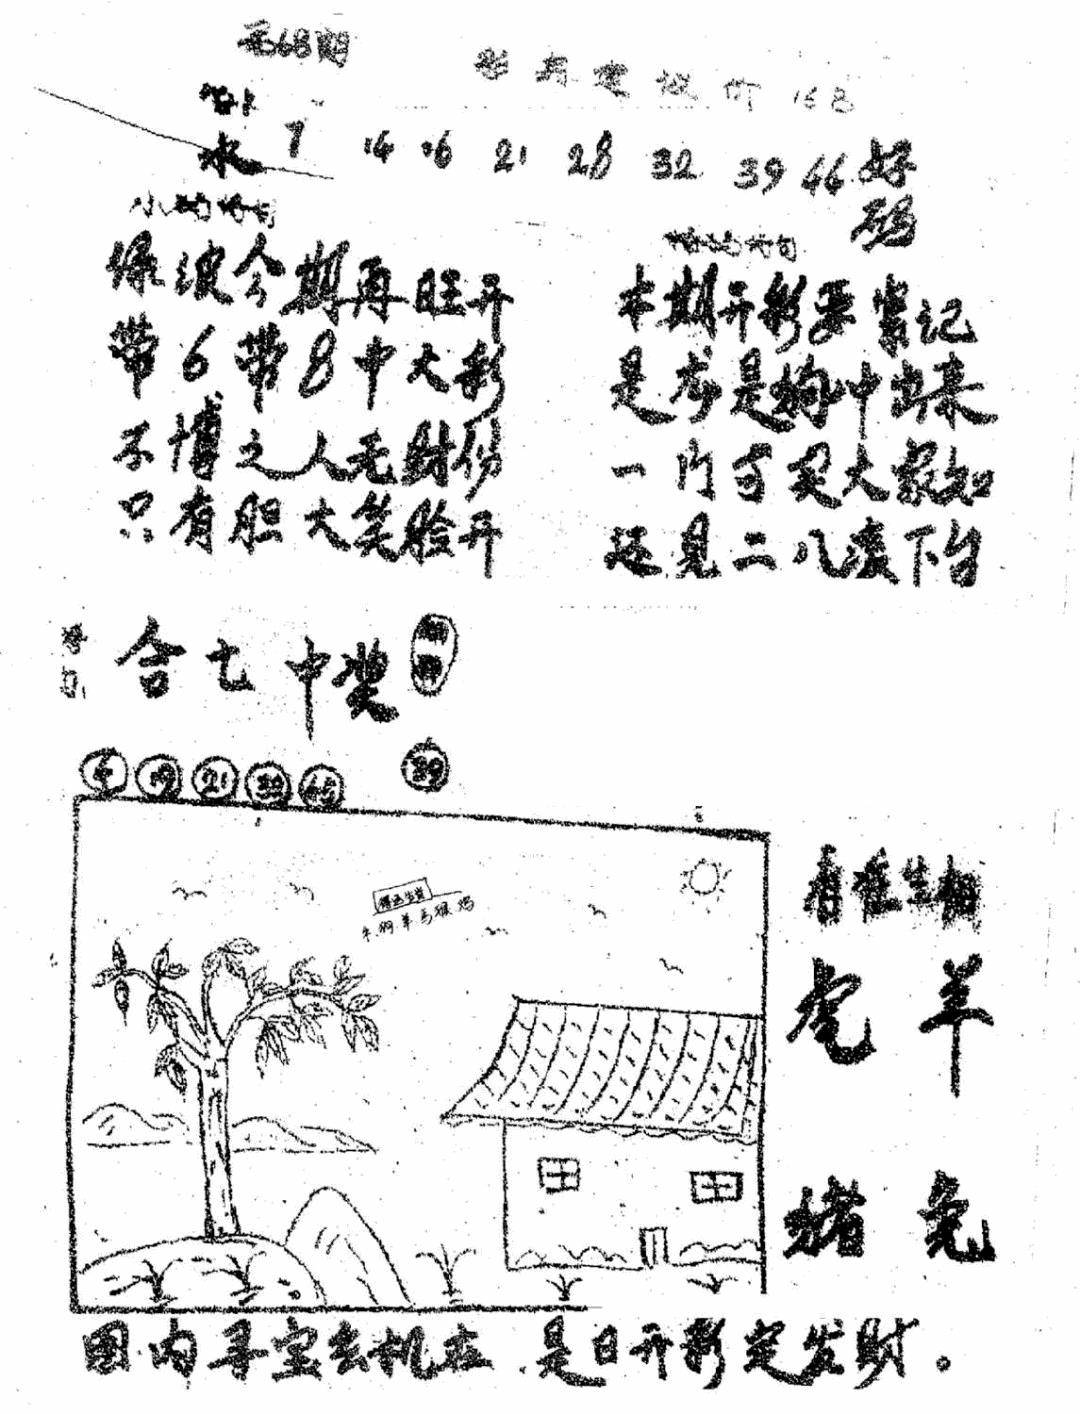 第68期
168
水 7 14 16 21 28 32 39 46 好码
绿波今期再旺开
带6带8中大彩
不博之人无财份
只有胆大笑脸开
本期开彩要紧记
是龙是狗冲出来
一门可买大家知
还见二八凑下台
合七中奖
19 21 32 45 39
牛狗羊马猴鸡
有准生相
虎 羊
猪 兔
图内寻宝玄机在 是日开彩定发财。